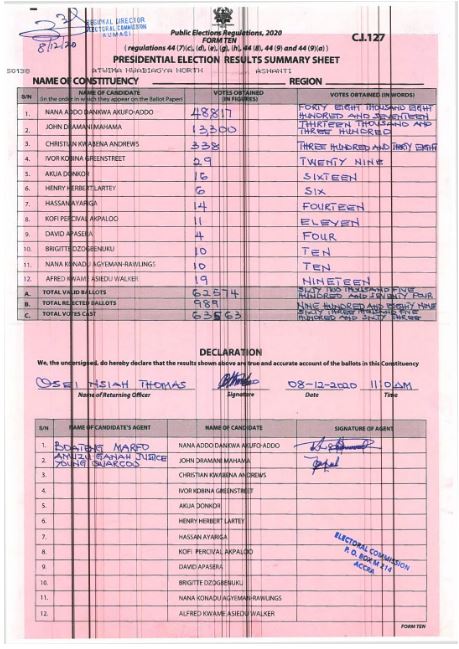 REGIONAL DIRECTOR
ELECTORAL COMMISSION
KUMASI
8/12/20
Public Elections Regulations, 2020
FORM TEN
C.I.127
(regulations 44 (7)(c), (d), (e), (g), (h), 44 (8), 44 (9) and 44 (9)(e))
PRESIDENTIAL ELECTION RESULTS SUMMARY SHEET
ATWIMA NWABIAGYA NORTH ASHANTI
NAME OF CONSTITUENCY REGION
S/N NAME OF CANDIDATE (in the order in which they appear on the Ballot Paper) VOTES OBTAINED (IN FIGURES) VOTES OBTAINED (IN WORDS)
1. NANA ADDO DANKWA AKUFO-ADDO 48817 FORTY EIGHT THOUSAND EIGHT HUNDRED AND SEVENTEEN
2. JOHN DRAMANI MAHAMA 13,300 THIRTEEN THOUSAND AND THREE HUNDRED
3. CHRISTIAN KWABENA ANDREWS 338 THREE HUNDRED AND THIRTY EIGHT
4. IVOR KOBINA GREENSTREET 29 TWENTY NINE
5. AKUA DONKOR 16 SIXTEEN
6. HENRY HERBERT LARTEY 6 SIX
7. HASSAN AYARIGA 14 FOURTEEN
8. KOFI PERCIVAL AKPALOO 11 ELEVEN
9. DAVID APASERA 4 FOUR
10. BRIGITTE DZOGBENUKU 10 TEN
11. NANA KONADU AGYEMAN-RAWLINGS 10 TEN
12. AFRED KWAME ASIEDU WALKER 19 NINETEEN
A. TOTAL VALID BALLOTS 62574 SIXTY TWO THOUSAND FIVE HUNDRED AND SEVENTY FOUR
B. TOTAL REJECTED BALLOTS 989 NINE HUNDRED AND EIGHTY NINE
C. TOTAL VOTES CAST 63563 SIXTY THREE THOUSAND FIVE HUNDRED AND SIXTY THREE
DECLARATION
We, the undersigned, do hereby declare that the results shown above are true and accurate account of the ballots in this Constituency
OSEI NSIAH THOMAS 08-12-2020 11:0 AM
Name of Returning Officer Signature Date Time
S/N NAME OF CANDIDATE'S AGENT NAME OF CANDIDATE SIGNATURE OF AGENT
1. BOATENG MARFO NANA ADDO DANKWA AKUFO-ADDO
2. JUSTICE YOUNG JOHN DRAMANI MAHAMA
3. CHRISTIAN KWABENA ANDREWS
4. IVOR KOBINA GREENSTREET
5. AKUA DONKOR
6. HENRY HERBERT LARTEY
7. HASSAN AYARIGA
8. KOFI PERCIVAL AKPALOO
9. DAVID APASERA
10. BRIGITTE DZOGBENUKU
11. NANA KONADU AGYEMAN-RAWLINGS
12. ALFRED KWAME ASIEDU WALKER
ELECTORAL COMMISSION
P. O. BOX M 214
ACCRA
FORM TEN